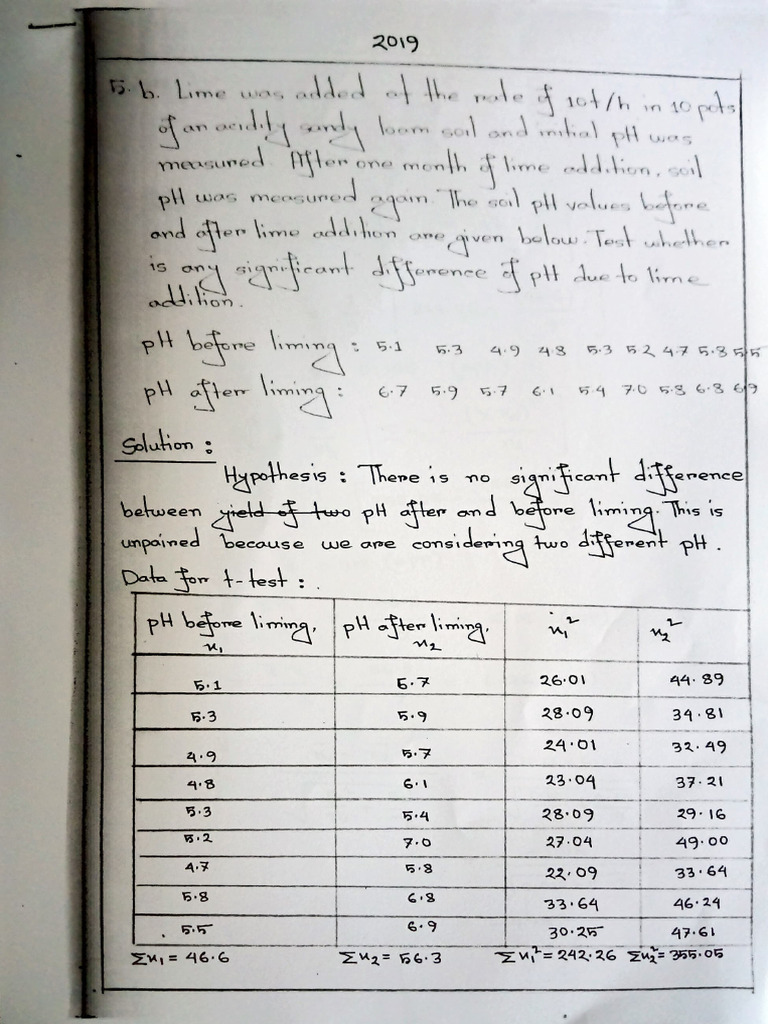 2019
5. b. Lime was added at the rate of 10t/h in 10 pots
of an acidify sandy loam soil and initial pH was
measured. After one month of lime addition, soil
pH was measured again. The soil pH values before
and after lime addition are given below. Test whether
is any significant difference of pH due to lime
addition.
pH before liming : 5.1 5.3 4.9 4.8 5.3 5.2 4.7 5.8 5.5
pH after liming : 6.7 5.9 5.7 6.1 5.4 7.0 5.8 6.8 6.9
Solution :
Hypothesis : There is no significant difference
between yield of two pH after and before liming. This is
unpaired because we are considering two different pH.
Data for t-test :
pH before liming, x₁ pH after liming, x₂ x₁² x₂²
5.1 6.7 26.01 44.89
5.3 5.9 28.09 34.81
4.9 5.7 24.01 32.49
4.8 6.1 23.04 37.21
5.3 5.4 28.09 29.16
5.2 7.0 27.04 49.00
4.7 5.8 22.09 33.64
5.8 6.8 33.64 46.24
5.5 6.9 30.25 47.61
Σx₁ = 46.6 Σx₂ = 56.3 Σx₁² = 242.26 Σx₂² = 355.05